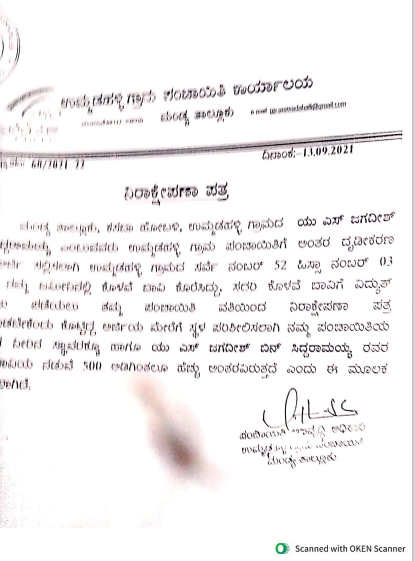 ಉಮ್ಮಡಹಳ್ಳಿ ಗ್ರಾಮ ಪಂಚಾಯಿತಿ ಕಾರ್ಯಾಲಯ
ಮಂಡ್ಯ ತಾಲ್ಲೂಕು
2021-22
ದಿನಾಂಕ:-13.09.2021
ನಿರಾಕ್ಷೇಪಣಾ ಪತ್ರ
ಮಂಡ್ಯ ತಾಲ್ಲೂಕು, ಕಸಬಾ ಹೋಬಳಿ, ಉಮ್ಮಡಹಳ್ಳಿ ಗ್ರಾಮದ ಯು ಎಸ್ ಜಗದೀಶ್
ಎಂಬುವವರು ಉಮ್ಮಡಹಳ್ಳಿ ಗ್ರಾಮ ಪಂಚಾಯಿತಿಗೆ ಅಂತರ ದೃಢೀಕರಣ
ಉಮ್ಮಡಹಳ್ಳಿ ಗ್ರಾಮದ ಸರ್ವೆ ನಂಬರ್ 52 ಹಿಸ್ಸಾ ನಂಬರ್ 03
ಜಮೀನಿನಲ್ಲಿ ಕೊಳವೆ ಬಾವಿ ಕೊರೆಸಿದ್ದು, ಸದರಿ ಕೊಳವೆ ಬಾವಿಗೆ ವಿದ್ಯುತ್
ಪಡೆಯಲು ತಮ್ಮ ಪಂಚಾಯಿತಿ ವತಿಯಿಂದ ನಿರಾಕ್ಷೇಪಣಾ ಪತ್ರ
ಕೊಟ್ಟಿದ್ದ ಅರ್ಜಿಯ ಮೇರೆಗೆ ಸ್ಥಳ ಪರಿಶೀಲಿಸಲಾಗಿ ನಮ್ಮ ಪಂಚಾಯಿತಿಯ
ನೀರಿನ ಸ್ಥಾವರಕ್ಕೂ ಹಾಗೂ ಯು ಎಸ್ ಜಗದೀಶ್ ಬಿನ್ ಸಿದ್ದರಾಮಯ್ಯ ರವರ
ನಡುವೆ 500 ಅಡಿಗಿಂತಲೂ ಹೆಚ್ಚು ಅಂತರವಿರುತ್ತದೆ ಎಂದು ಈ ಮೂಲಕ
ಪಂಚಾಯಿತಿ ಅಭಿವೃದ್ಧಿ ಅಧಿಕಾರಿ
ಉಮ್ಮಡಹಳ್ಳಿ ಗ್ರಾಮ ಪಂಚಾಯಿತಿ
ಮಂಡ್ಯ ತಾಲ್ಲೂಕು.
Scanned with OKEN Scanner